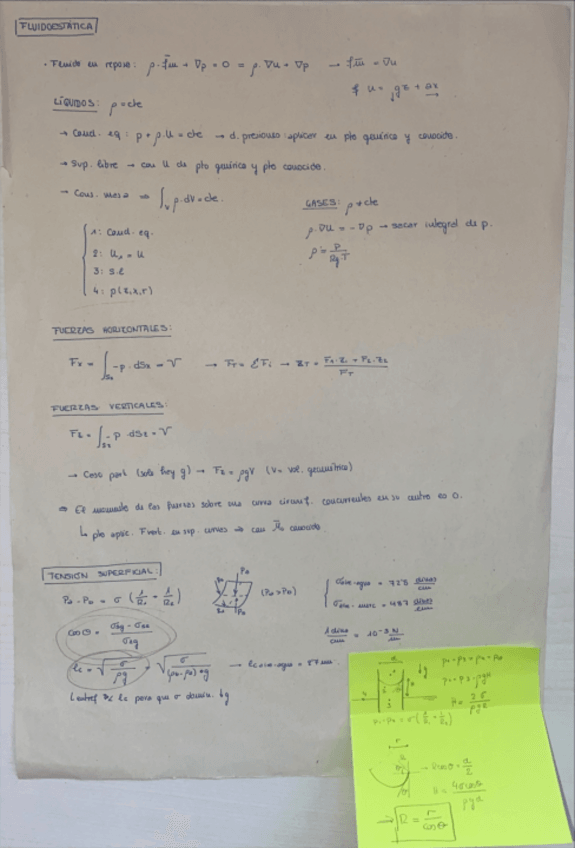 FLUIDOESTÁTICA
· Fluido en reposo: ρ·f̄m + ∇p = 0 = ρ·∇u + ∇p → f̄m = ∇u
u = gz + ax
LÍQUIDOS: ρ = cte
→ Cond. eq: p + ρ.U = cte → d. previous aplicar en pto genérico y conocido.
→ Sup. libre → con U de pto genérico y pto conocido.
→ Cons. masa ⇒ ∫v ρ.dV = cte.
1: Cond. eq.
2: U₁ = U
3: s.l
4: p(z,x,r)
GASES: ρ ≠ cte
ρ.∇U = -∇p → sacar integral de p.
ρ = p / RgT
FUERZAS HORIZONTALES:
Fx = ∫ -p · dSx = → FT = ΣFi → ZT = F₁·Z₁ + F₂·Z₂ / FT
FUERZAS VERTICALES:
Fz = ∫ -p · dSz =
→ Caso part. (solo hay g) → Fz = ρgV (V = vol. geométrico)
⇒ El momento de las fuerzas sobre una curva circunf. concurrentes en su centro es 0.
↳ pto aplic. Fvert. en sup. curvas ⇒ con M̄o conocido
TENSIÓN SUPERFICIAL:
= σ (1/R₁ + 1/R₂)
σaire-agua = dinas/cm
σaire-merc = 487 dinas/cm
1 dina/cm = 10⁻³ N/m
cos θ =
lc = √(σ/ρg) = √(σ/ g) → lc aire-agua =
lc para que σ domin. fg
H = 2σ
= σ(1/R₁ + 1/R₂)
→ cos θ = a/2
H = 4σcosθ / ρga
→ R = r / cosθ